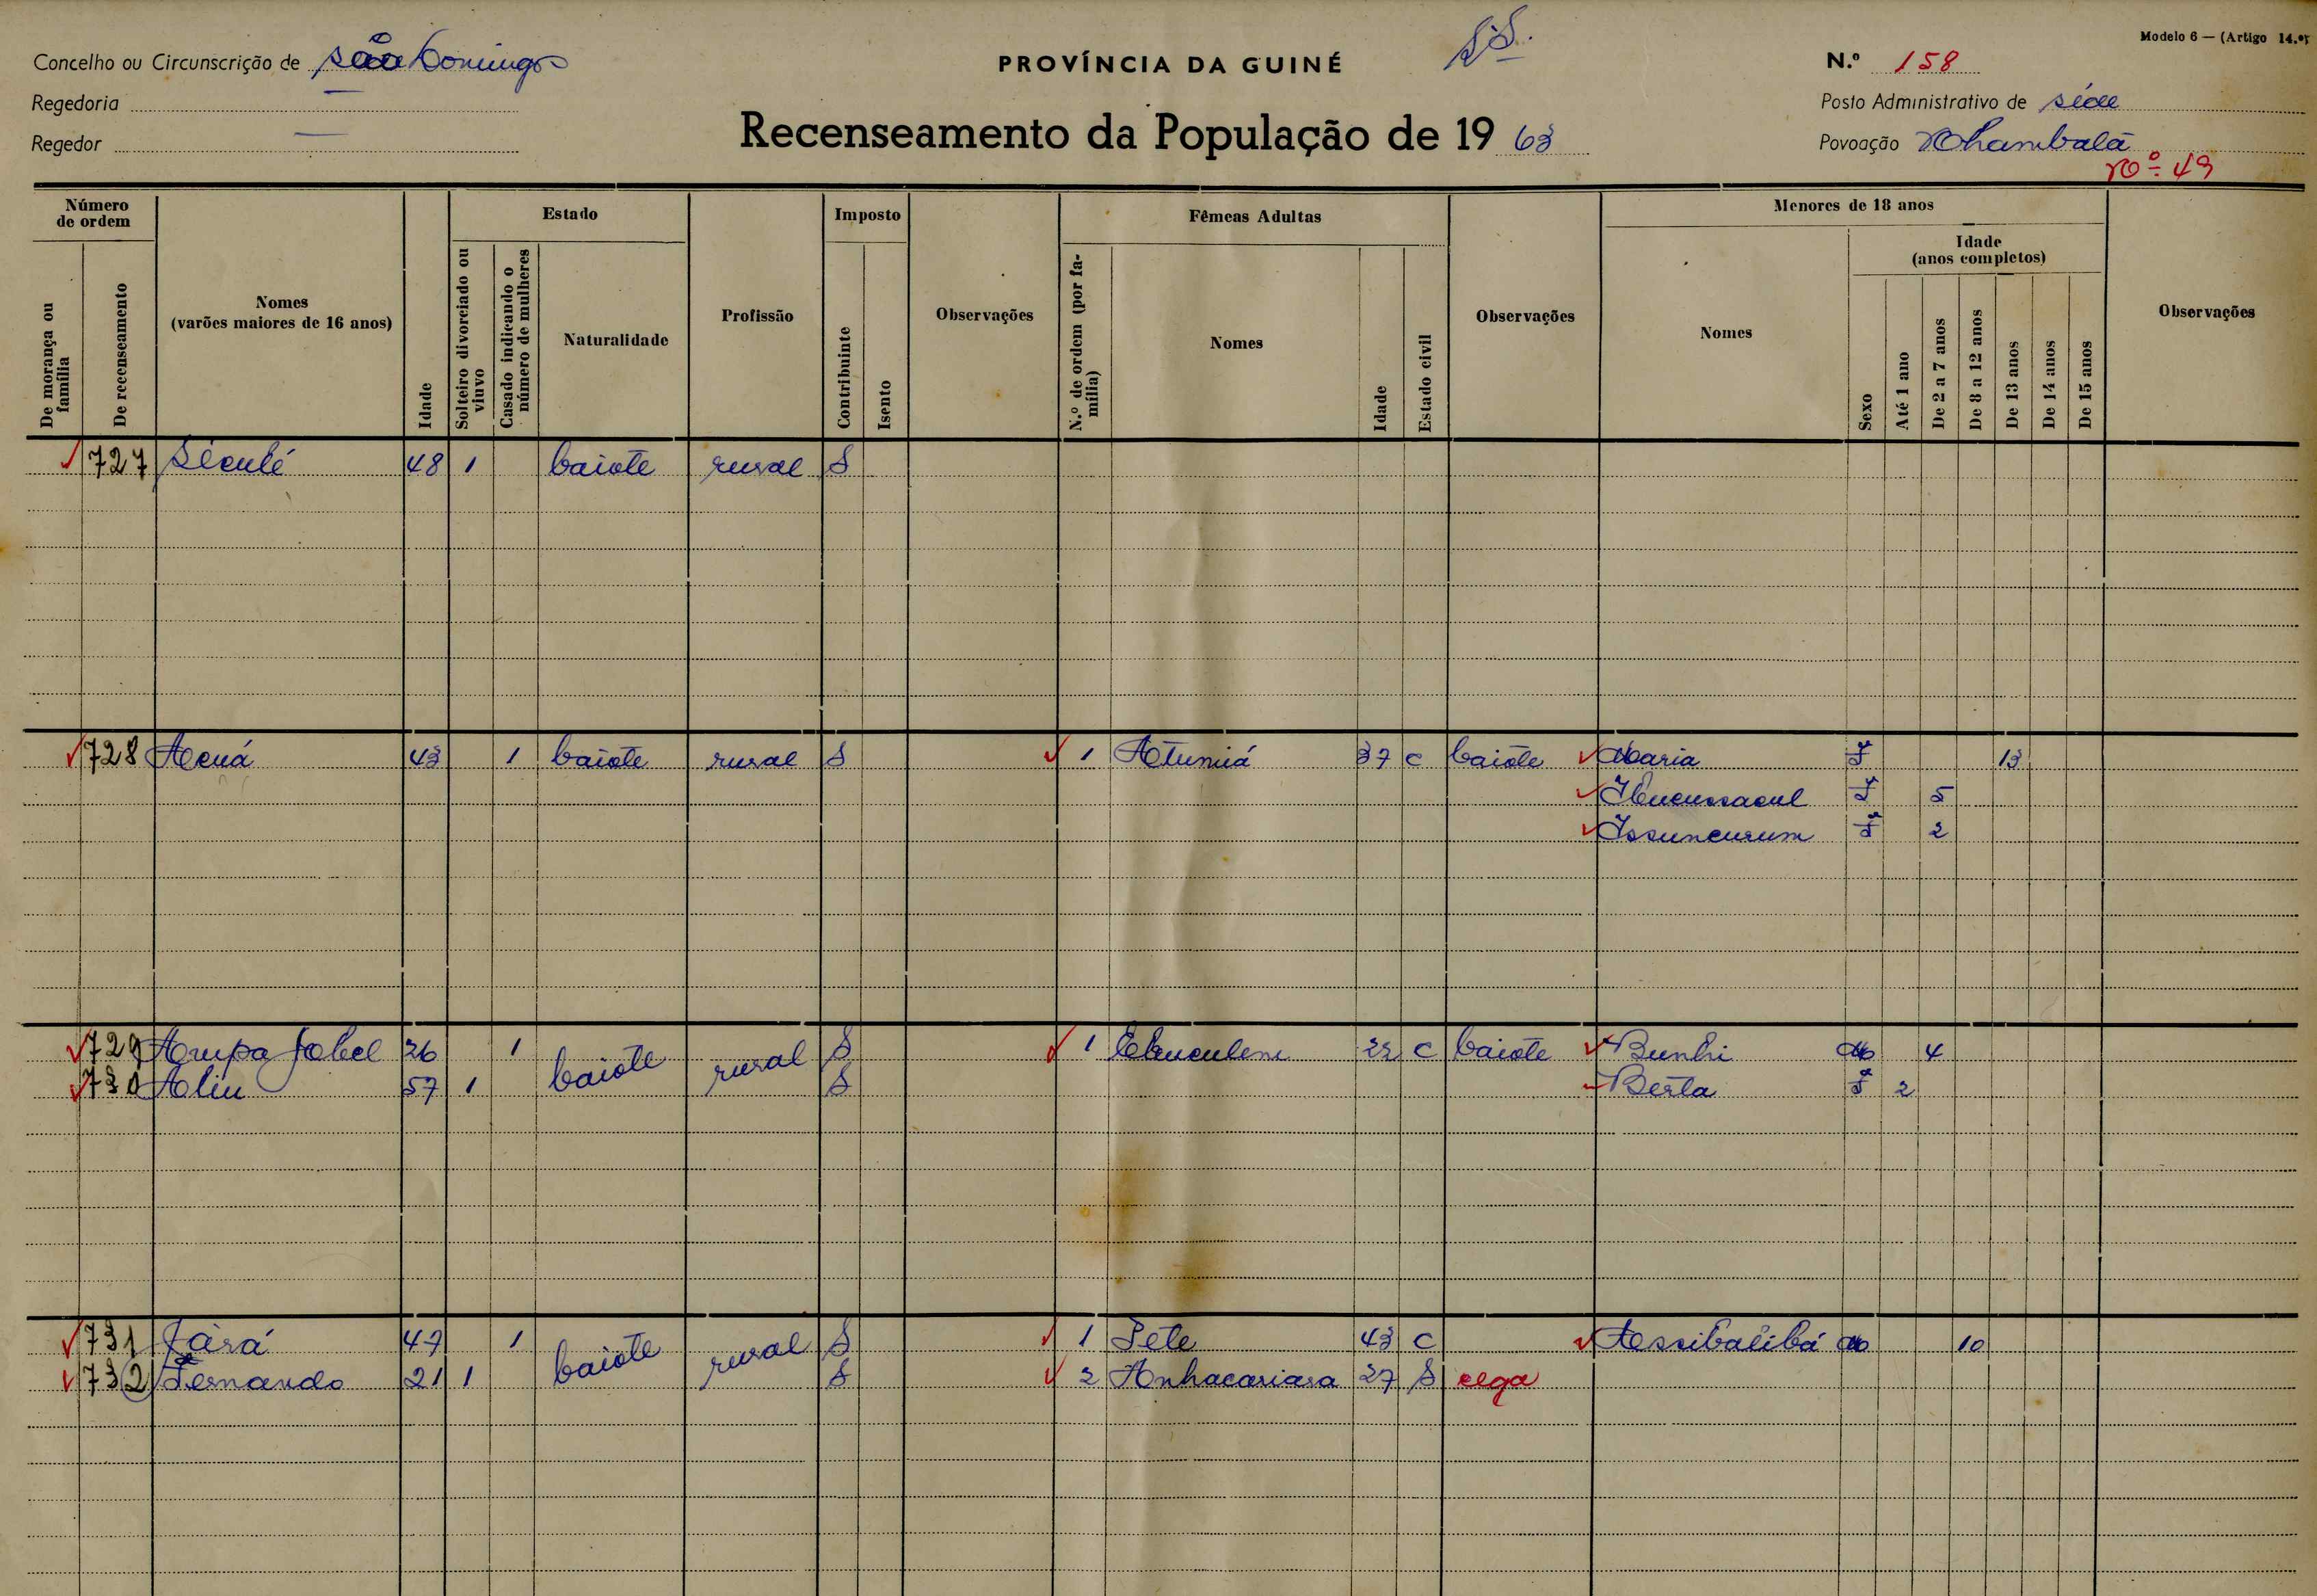 Modelo 6 — (Artigo 14.º)
Concelho ou Circunscrição de São Domingos
PROVÍNCIA DA GUINÉ
S.S.
N.º 158
Regedoria —
Posto Administrativo de séde
Regedor —
Recenseamento da População de 1963
Povoação Nhambalã
Nº 49
Número de ordem
De morança ou família
De recenseamento
Nomes (varões maiores de 16 anos)
Idade
Estado
Solteiro divorciado ou viuvo
Casado indicando o número de mulheres
Naturalidade
Profissão
Imposto
Contribuinte
Isento
Observações
Fêmeas Adultas
N.º de ordem (por família)
Nomes
Idade
Estado civil
Observações
Menores de 18 anos
Nomes
Idade (anos completos)
Sexo
Até 1 ano
De 2 a 7 anos
De 8 a 12 anos
De 13 anos
De 14 anos
De 15 anos
Observações
727 Séculé 48 1 baiote rural S
728 Acuá 43 1 baiote rural S 1 Atumiá 37 c baiote Maria F 13
F 5
Issuncurum F 2
729 Arupa Jobel 26 1 baiote rural S 1 22 c baiote Bunhi M 4
730 Aliu 57 1 S Berta F 2
731 Jará 47 1 baiote rural S 1 Pete 43 c Assibalibá M 10
732 Fernando 21 1 S 2 Anhacariara 27 S cega